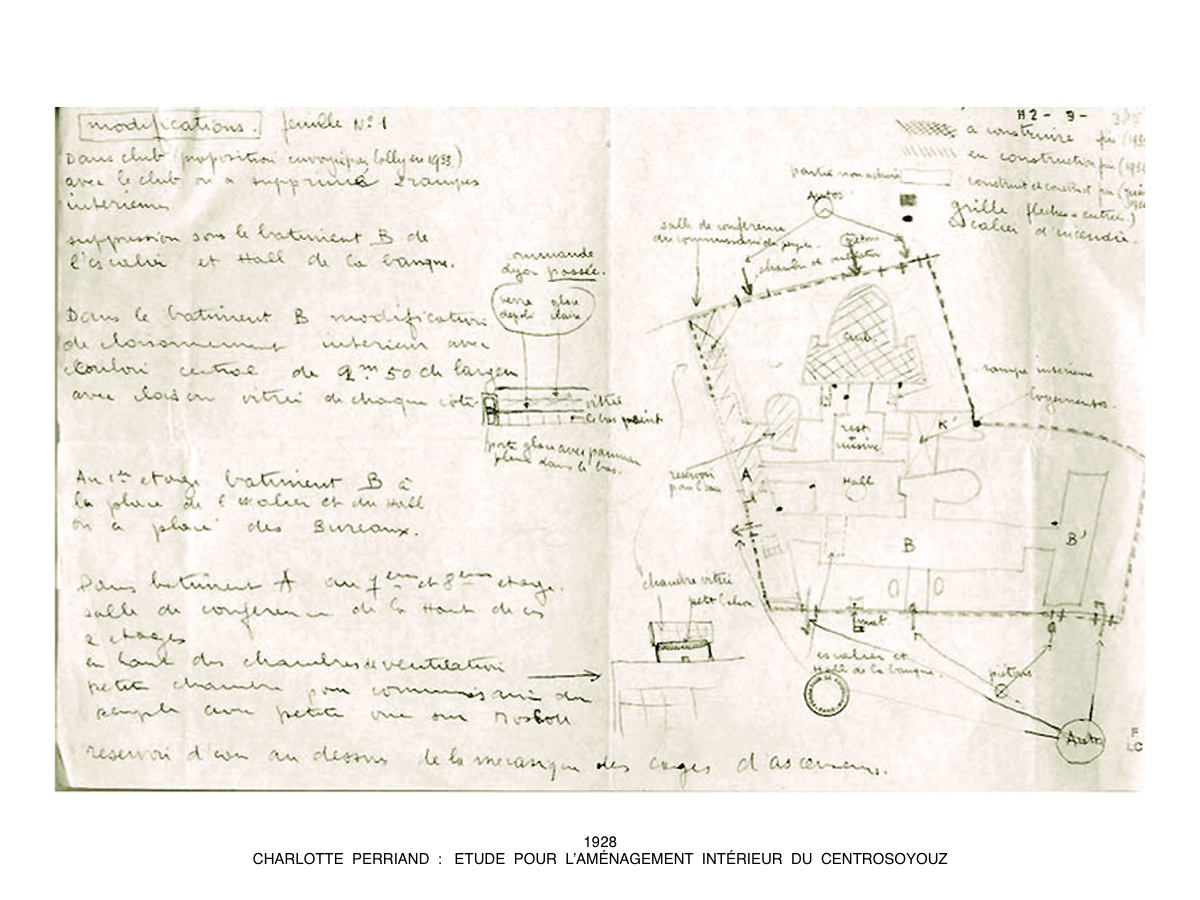 modifications. feuille No 1
Dans club (proposition envoyée par Colly en 1933)
avec le club on a supprimé 2 rampes
interieures
suppression sous le batiment B de
l'escalier et Hall de la banque.
Dans le batiment B modification
de cloisonnement interieur avec
couloir central de 2m50 de largeur
avec cloison vitrée de chaque coté
Au 1er etage batiment B à
la place de l'escalier et du Hall
on a placé des Bureaux.
Dans batiment A au 7eme et 8eme etage.
salle de conference de la Haut de ces
2 etages
en haut des chambres de ventilation
petite chambre pour commissaire du
peuple avec petite vue sur Moskou
reservoir d'eau au dessus de la mecanique des cages d'ascenseurs.
commande
deja passée.
verre depoli
glace claire
vitré
porte glace avec panneau
plein dans le bas.
H2 - 9 -
a construire
en construction
grille (fleches = entrées)
escalier d'incendie.
Autos
salle de conference
du commissaire du peuple.
chambre de ventilation
Club
rampe interieure
logements.
K
rest.
cuisine
reservoir
pour l'eau
A
Hall
B
B'
chambre vitrée
escalier et
Hall de la banque.
pietons
Autos
F
LC
1928
CHARLOTTE PERRIAND : ETUDE POUR L'AMÉNAGEMENT INTÉRIEUR DU CENTROSOYOUZ